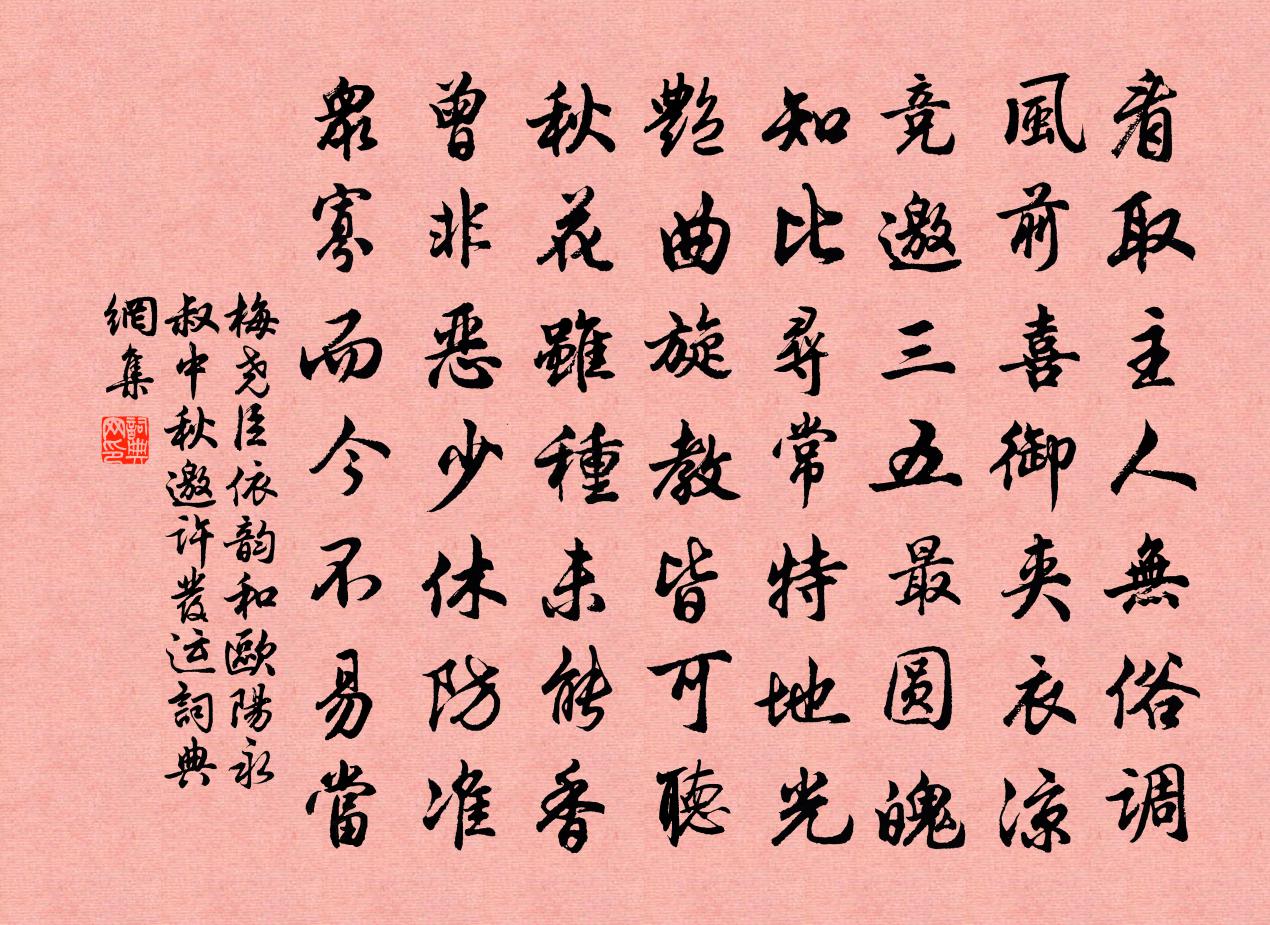 看取主人無俗调
風前喜御夹衣凉
竞邀三五最圆魄
知比尋常特地光
艷曲旋教皆可聽
秋花雖種未能香
曾非惡少休防准
眾寡而今不易當
梅尧臣依韵和歐陽永
叔中秋邀许發运詞典
網集
詞典网印